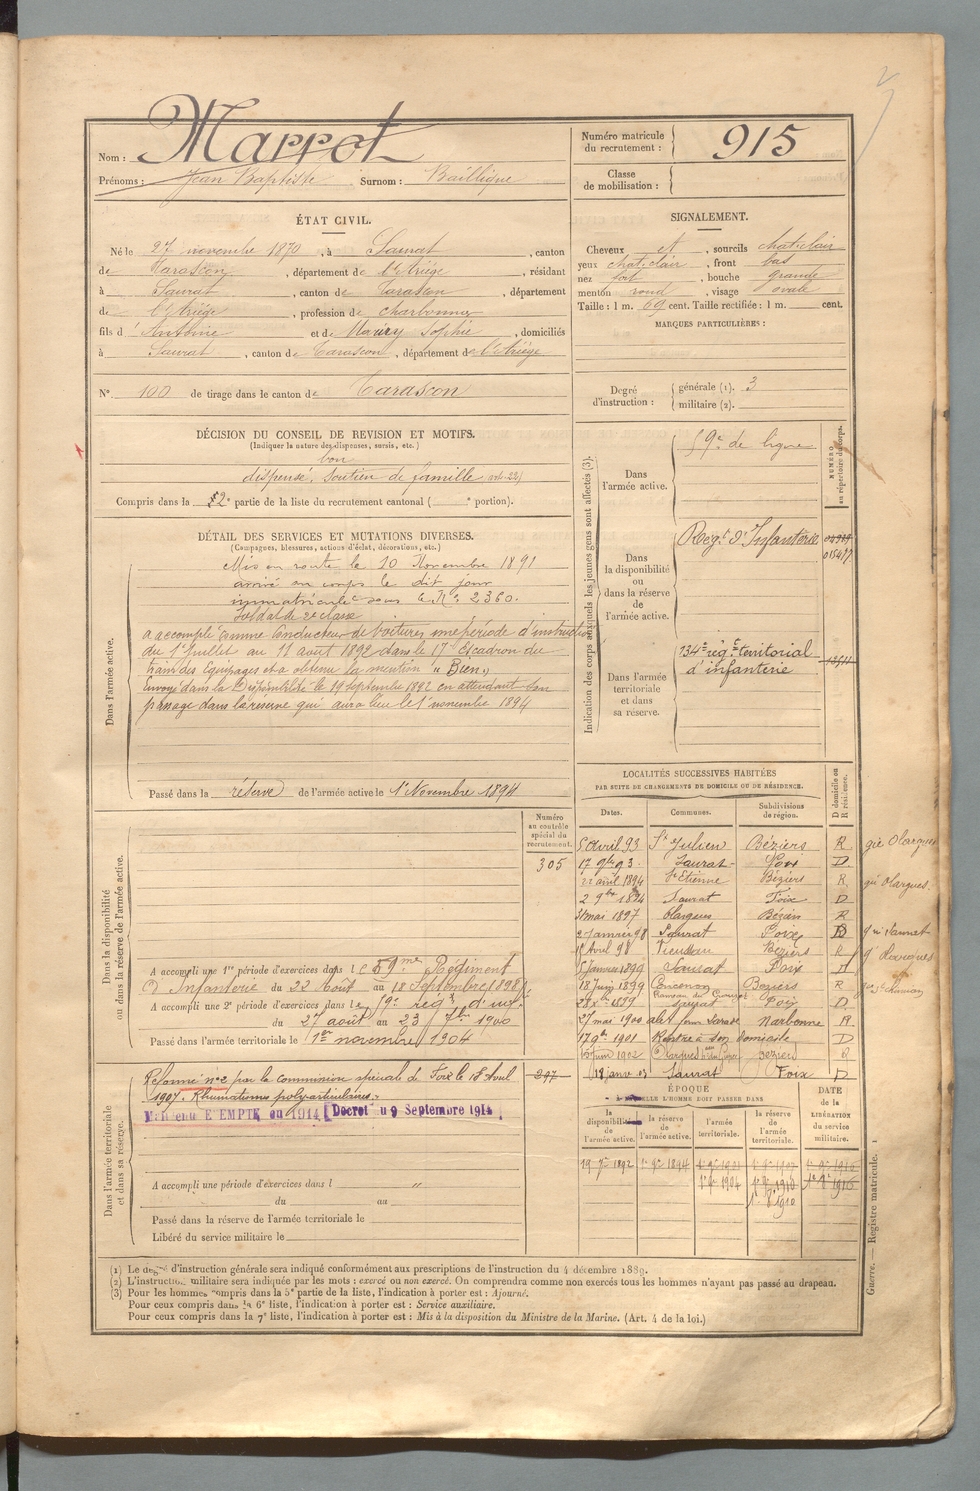 Marrot
Nom :
Prénoms : Jean Baptiste Surnom : Baillique
Numéro matricule du recrutement : 915
Classe de mobilisation :
ÉTAT CIVIL.
Né le 27 novembre 1870, à Saurat, canton
de Tarascon, département de l'Ariége, résidant
à Saurat, canton de Tarascon, département
de l'Ariége, profession de charbonnier
fils d' Antoine et de Maury Sophie, domiciliés
à Saurat, canton de Tarascon, département de l'Ariége
N° 100 de tirage dans le canton de Tarascon
SIGNALEMENT.
Cheveux et, sourcils chat. clair
yeux chat. clair, front bas
nez fort, bouche grande
menton rond, visage ovale
Taille : 1 m. 69 cent. Taille rectifiée : 1 m. cent.
MARQUES PARTICULIÈRES :
Degré d'instruction : générale (1). 3
militaire (2).
DÉCISION DU CONSEIL DE REVISION ET MOTIFS.
(Indiquer la nature des dispenses, sursis, etc.)
bon
dispensé. Soutien de famille art. 22)
Compris dans la 2e partie de la liste du recrutement cantonal ( e portion).
DÉTAIL DES SERVICES ET MUTATIONS DIVERSES.
(Campagnes, blessures, actions d'éclat, décorations, etc.)
Dans l'armée active.
Mis en route le 10 Novembre 1891
arrivé au corps le dit jour
immatriculé sous le N° 2360.
Soldat de 2e classe
a accompli comme Conducteur de voitures une période d'instruction
du 1er Juillet au 11 août 1892 dans le 17e Escadron du
train des Equipages et a obtenu la mention " Bien "
Envoyé dans la Disponibilité le 19 septembre 1892 en attendant son
passage dans la réserve qui aura lieu le 1er novembre 1894
Passé dans la réserve de l'armée active le 1er Novembre 1894
Indication des corps auxquels les jeunes gens sont affectés (3).
NUMÉRO au répertoire du corps.
Dans l'armée active.
59e de ligne
Dans la disponibilité ou dans la réserve de l'armée active.
Regt d'Infanterie
Dans l'armée territoriale et dans sa réserve.
134e régt territorial
d'infanterie
LOCALITÉS SUCCESSIVES HABITÉES
PAR SUITE DE CHANGEMENTS DE DOMICILE OU DE RÉSIDENCE.
Dates. Communes. Subdivisions de région. D domicile ou R résidence.
5 avril 93 St Julien Béziers R gie Olargues
17 9bre 93 Saurat Foix D
22 avril 1894 St Etienne Béziers R gie Olargues.
2 9bre 1894 Saurat Foix D
31 mai 1897 Olargues Béziers R
2 Janvier 98 Saurat Foix D
Avril 98 Béziers R
5 Janvier 1899 Saurat Foix D
18 Juin 1899 Béziers R
1899 Saurat Foix D
27 mai 1900 Narbonne R
17 9bre 1901 Rentre à son domicile D
juin 1902 Olargues Béziers R
janv 03 Saurat Foix D
Dans la disponibilité ou dans la réserve de l'armée active.
Numéro au contrôle spécial du recrutement.
305
A accompli une 1re période d'exercices dans le 59me Régiment
d'Infanterie du 22 Août au 18 Septembre 1898.
A accompli une 2e période d'exercices dans le régt d'inf
du 27 août au 23 7bre 1900
Passé dans l'armée territoriale le 1er novembre 1904
Dans l'armée territoriale et dans sa réserve.
Réformé n° 2 par la commission spéciale de Foix le 18 Avril
1907. Rhumatismes polyarticulaires.
297
Maintenu EXEMPTÉ en 1914 [Décret du 9 Septembre 1914]
A accompli une période d'exercices dans l "
du au
Passé dans la réserve de l'armée territoriale le
Libéré du service militaire le
ÉPOQUE
À LAQUELLE L'HOMME DOIT PASSER DANS
la disponibilité de l'armée active.
la réserve de l'armée active.
l'armée territoriale.
la réserve de l'armée territoriale.
DATE de la LIBÉRATION du service militaire.
19 7bre 1892 1er 9bre 1894 1er 9bre 1904
(1) Le degré d'instruction générale sera indiqué conformément aux prescriptions de l'instruction du 4 décembre 1889.
(2) L'instruction militaire sera indiquée par les mots : exercé ou non exercé. On comprendra comme non exercés tous les hommes n'ayant pas passé au drapeau.
(3) Pour les hommes compris dans la 5e partie de la liste, l'indication à porter est : Ajourné.
Pour ceux compris dans la 6e liste, l'indication à porter est : Service auxiliaire.
Pour ceux compris dans la 7e liste, l'indication à porter est : Mis à la disposition du Ministre de la Marine. (Art. 4 de la loi.)
Guerre. — Registre matricule. 1